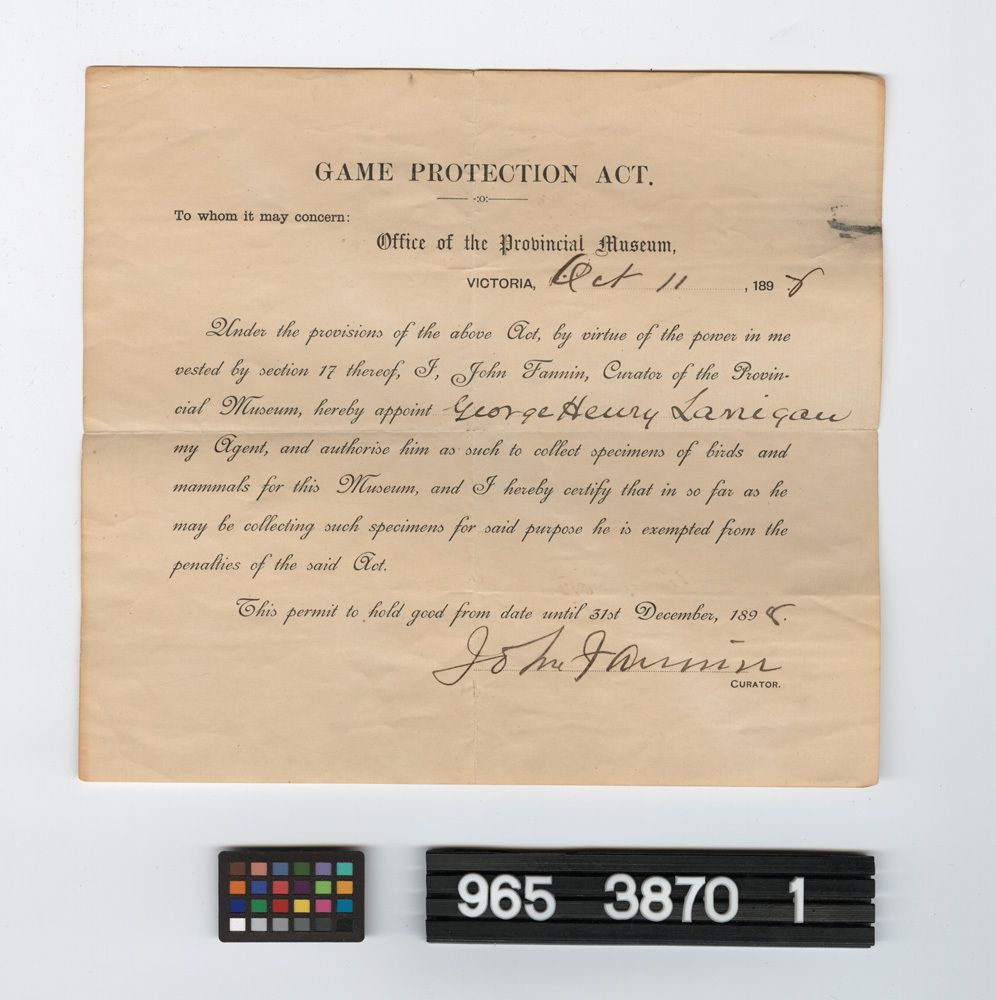 GAME PROTECTION ACT.
-:o:-
To whom it may concern:
Office of the Provincial Museum,
VICTORIA, Oct 11, 1898
Under the provisions of the above Act, by virtue of the power in me
vested by section 17 thereof, I, John Fannin, Curator of the Provin-
cial Museum, hereby appoint George Henry Lanigan
my Agent, and authorise him as such to collect specimens of birds and
mammals for this Museum, and I hereby certify that in so far as he
may be collecting such specimens for said purpose he is exempted from the
penalties of the said Act.
This permit to hold good from date until 31st December, 1898.
John Fannin
CURATOR.
965 3870 1